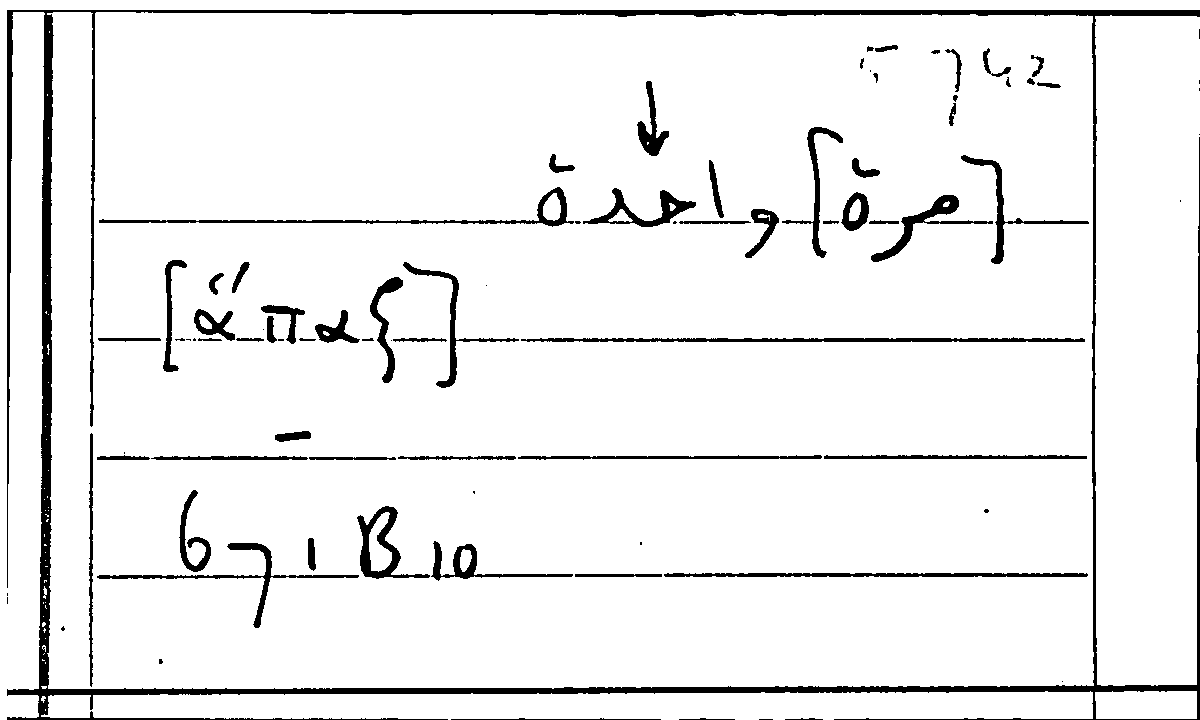 5742
↓
[مرة] واحدة
[ἅπαξ]
–
671 B 10